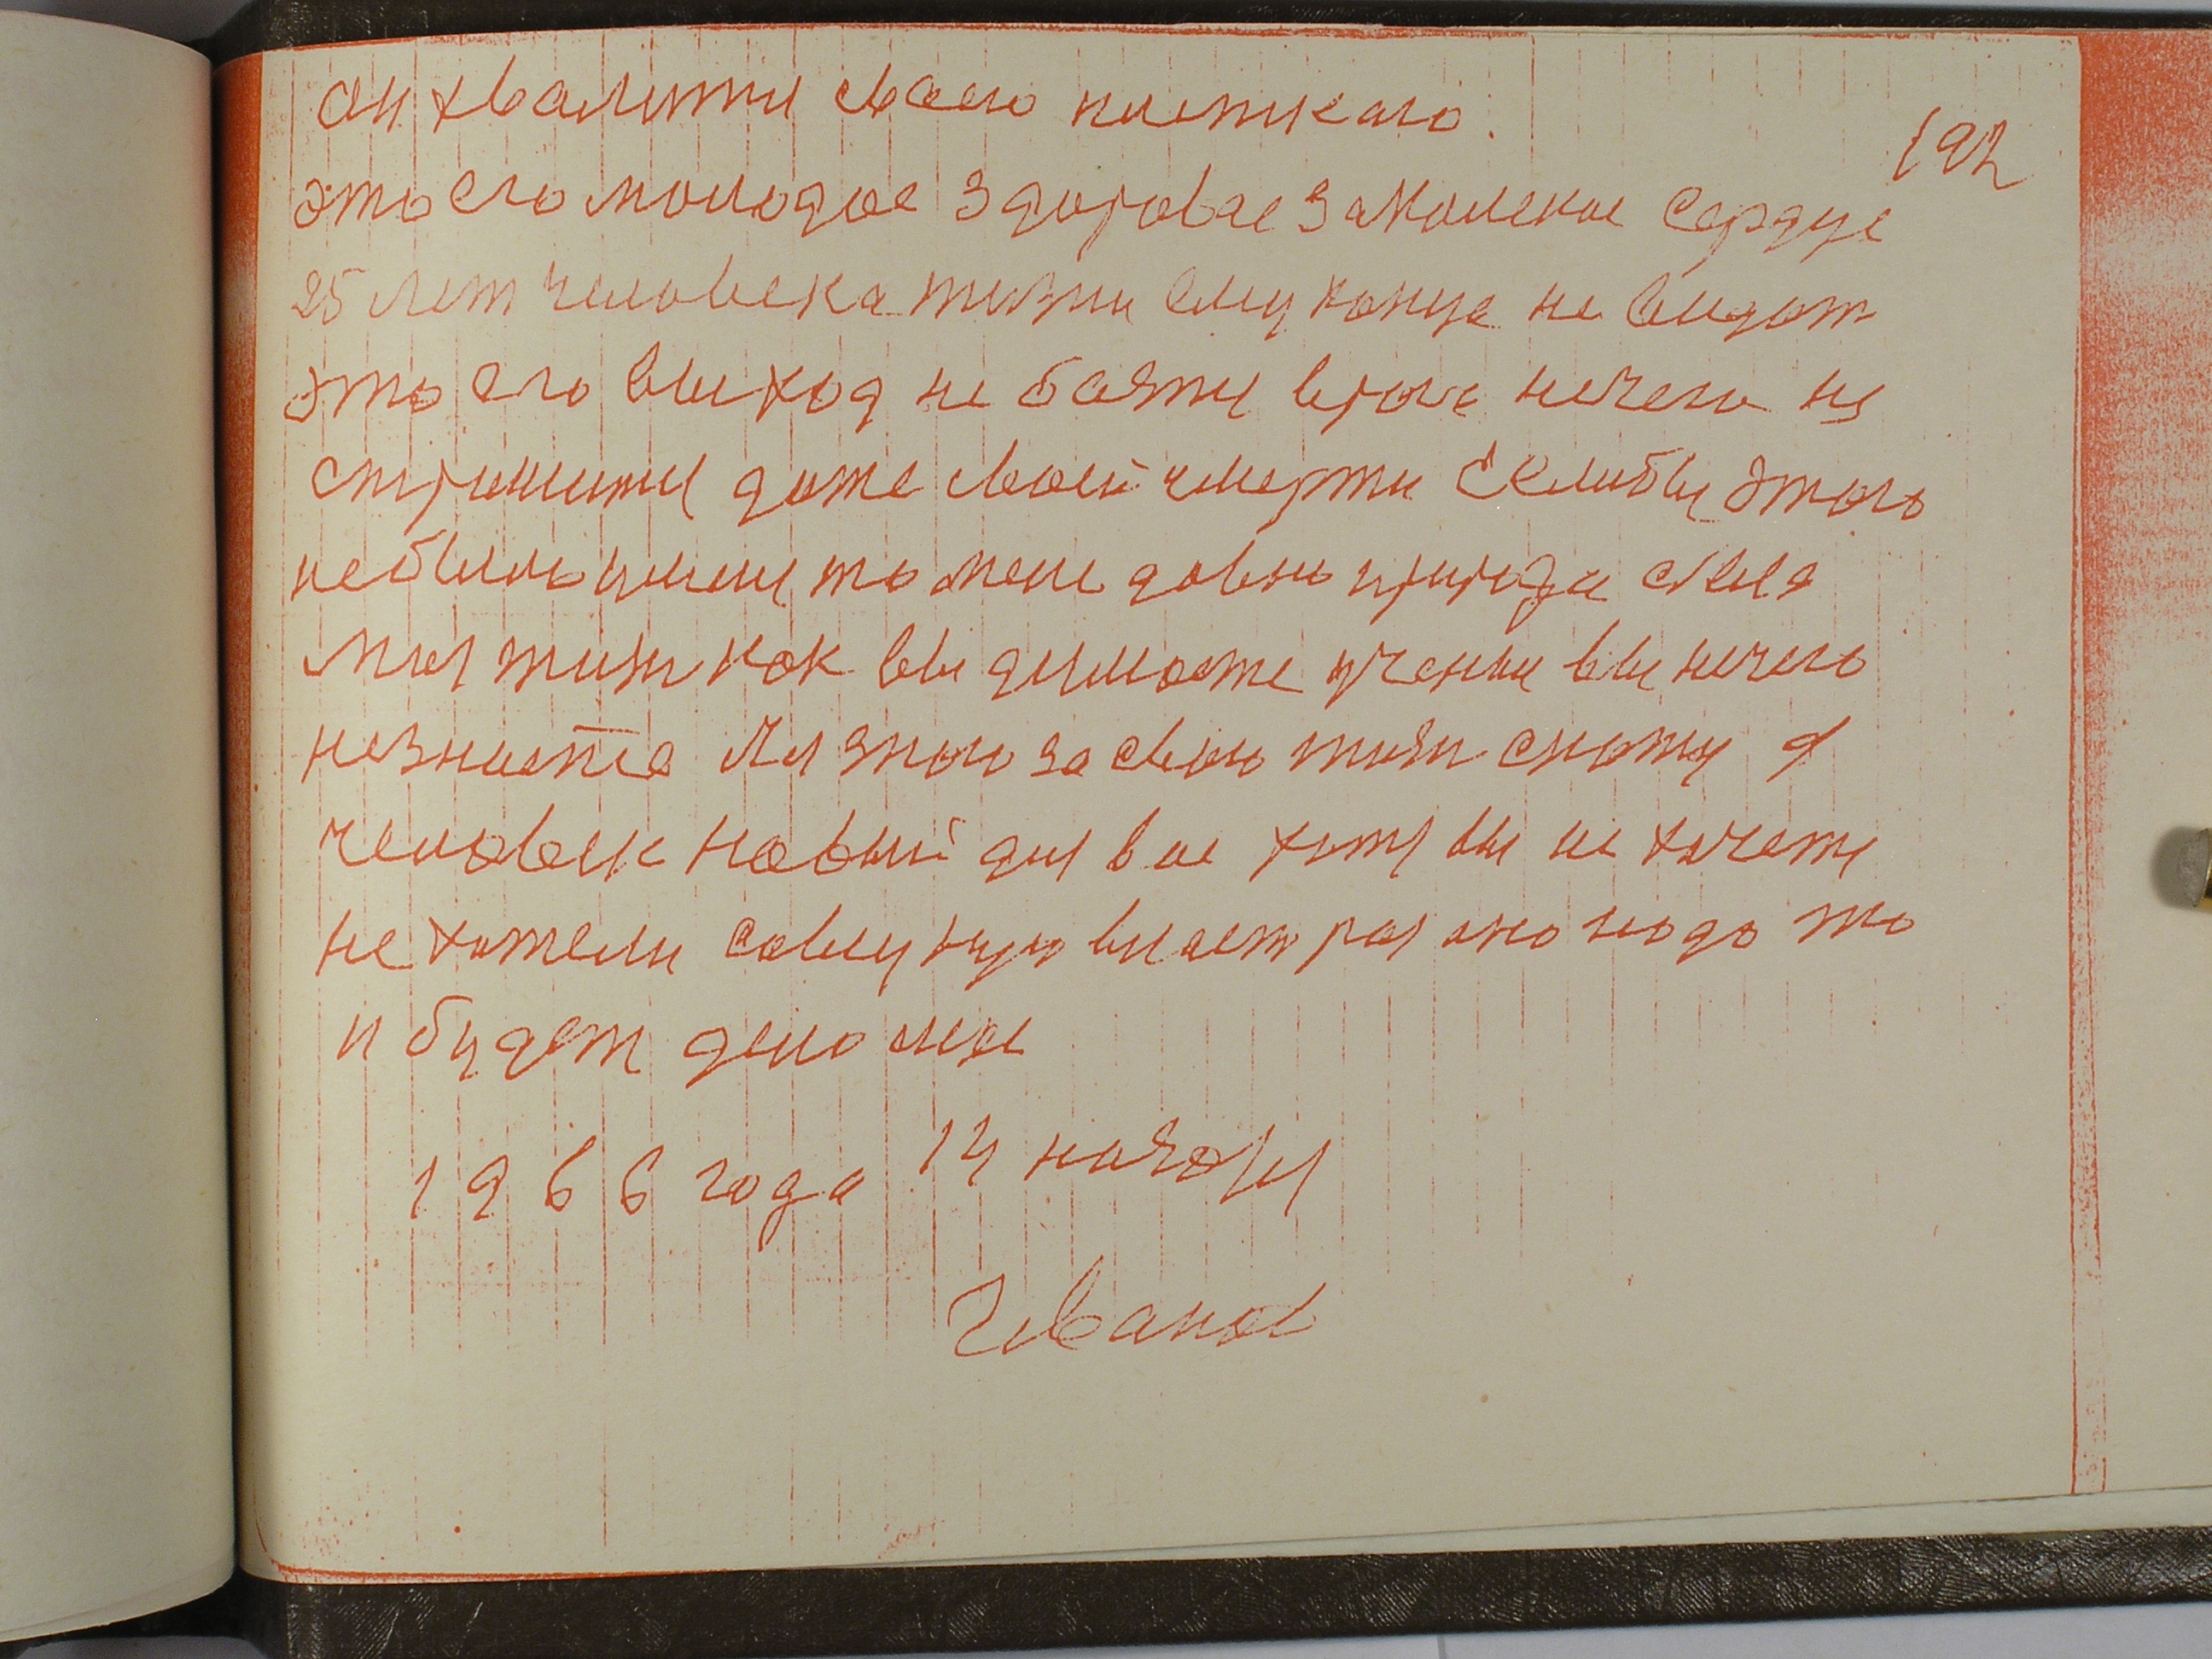 он хвалити своего
192
это его молодое здоровае закаленае сердце
25 лет человека жизни ему конца не видат
это его выход не баяти врага нечего не
страшити даже своей смерти Если бы этого
небыло у мене то мене давно природа
мая жизн как вы думаете ученыи вы нечего
незнаете А я этого за свою жизн скажу я
человек новый для вас хотя вы не хочете
не хотели раз оно надо то
и будет дело мое
1966 года 14 ноября
Иванов